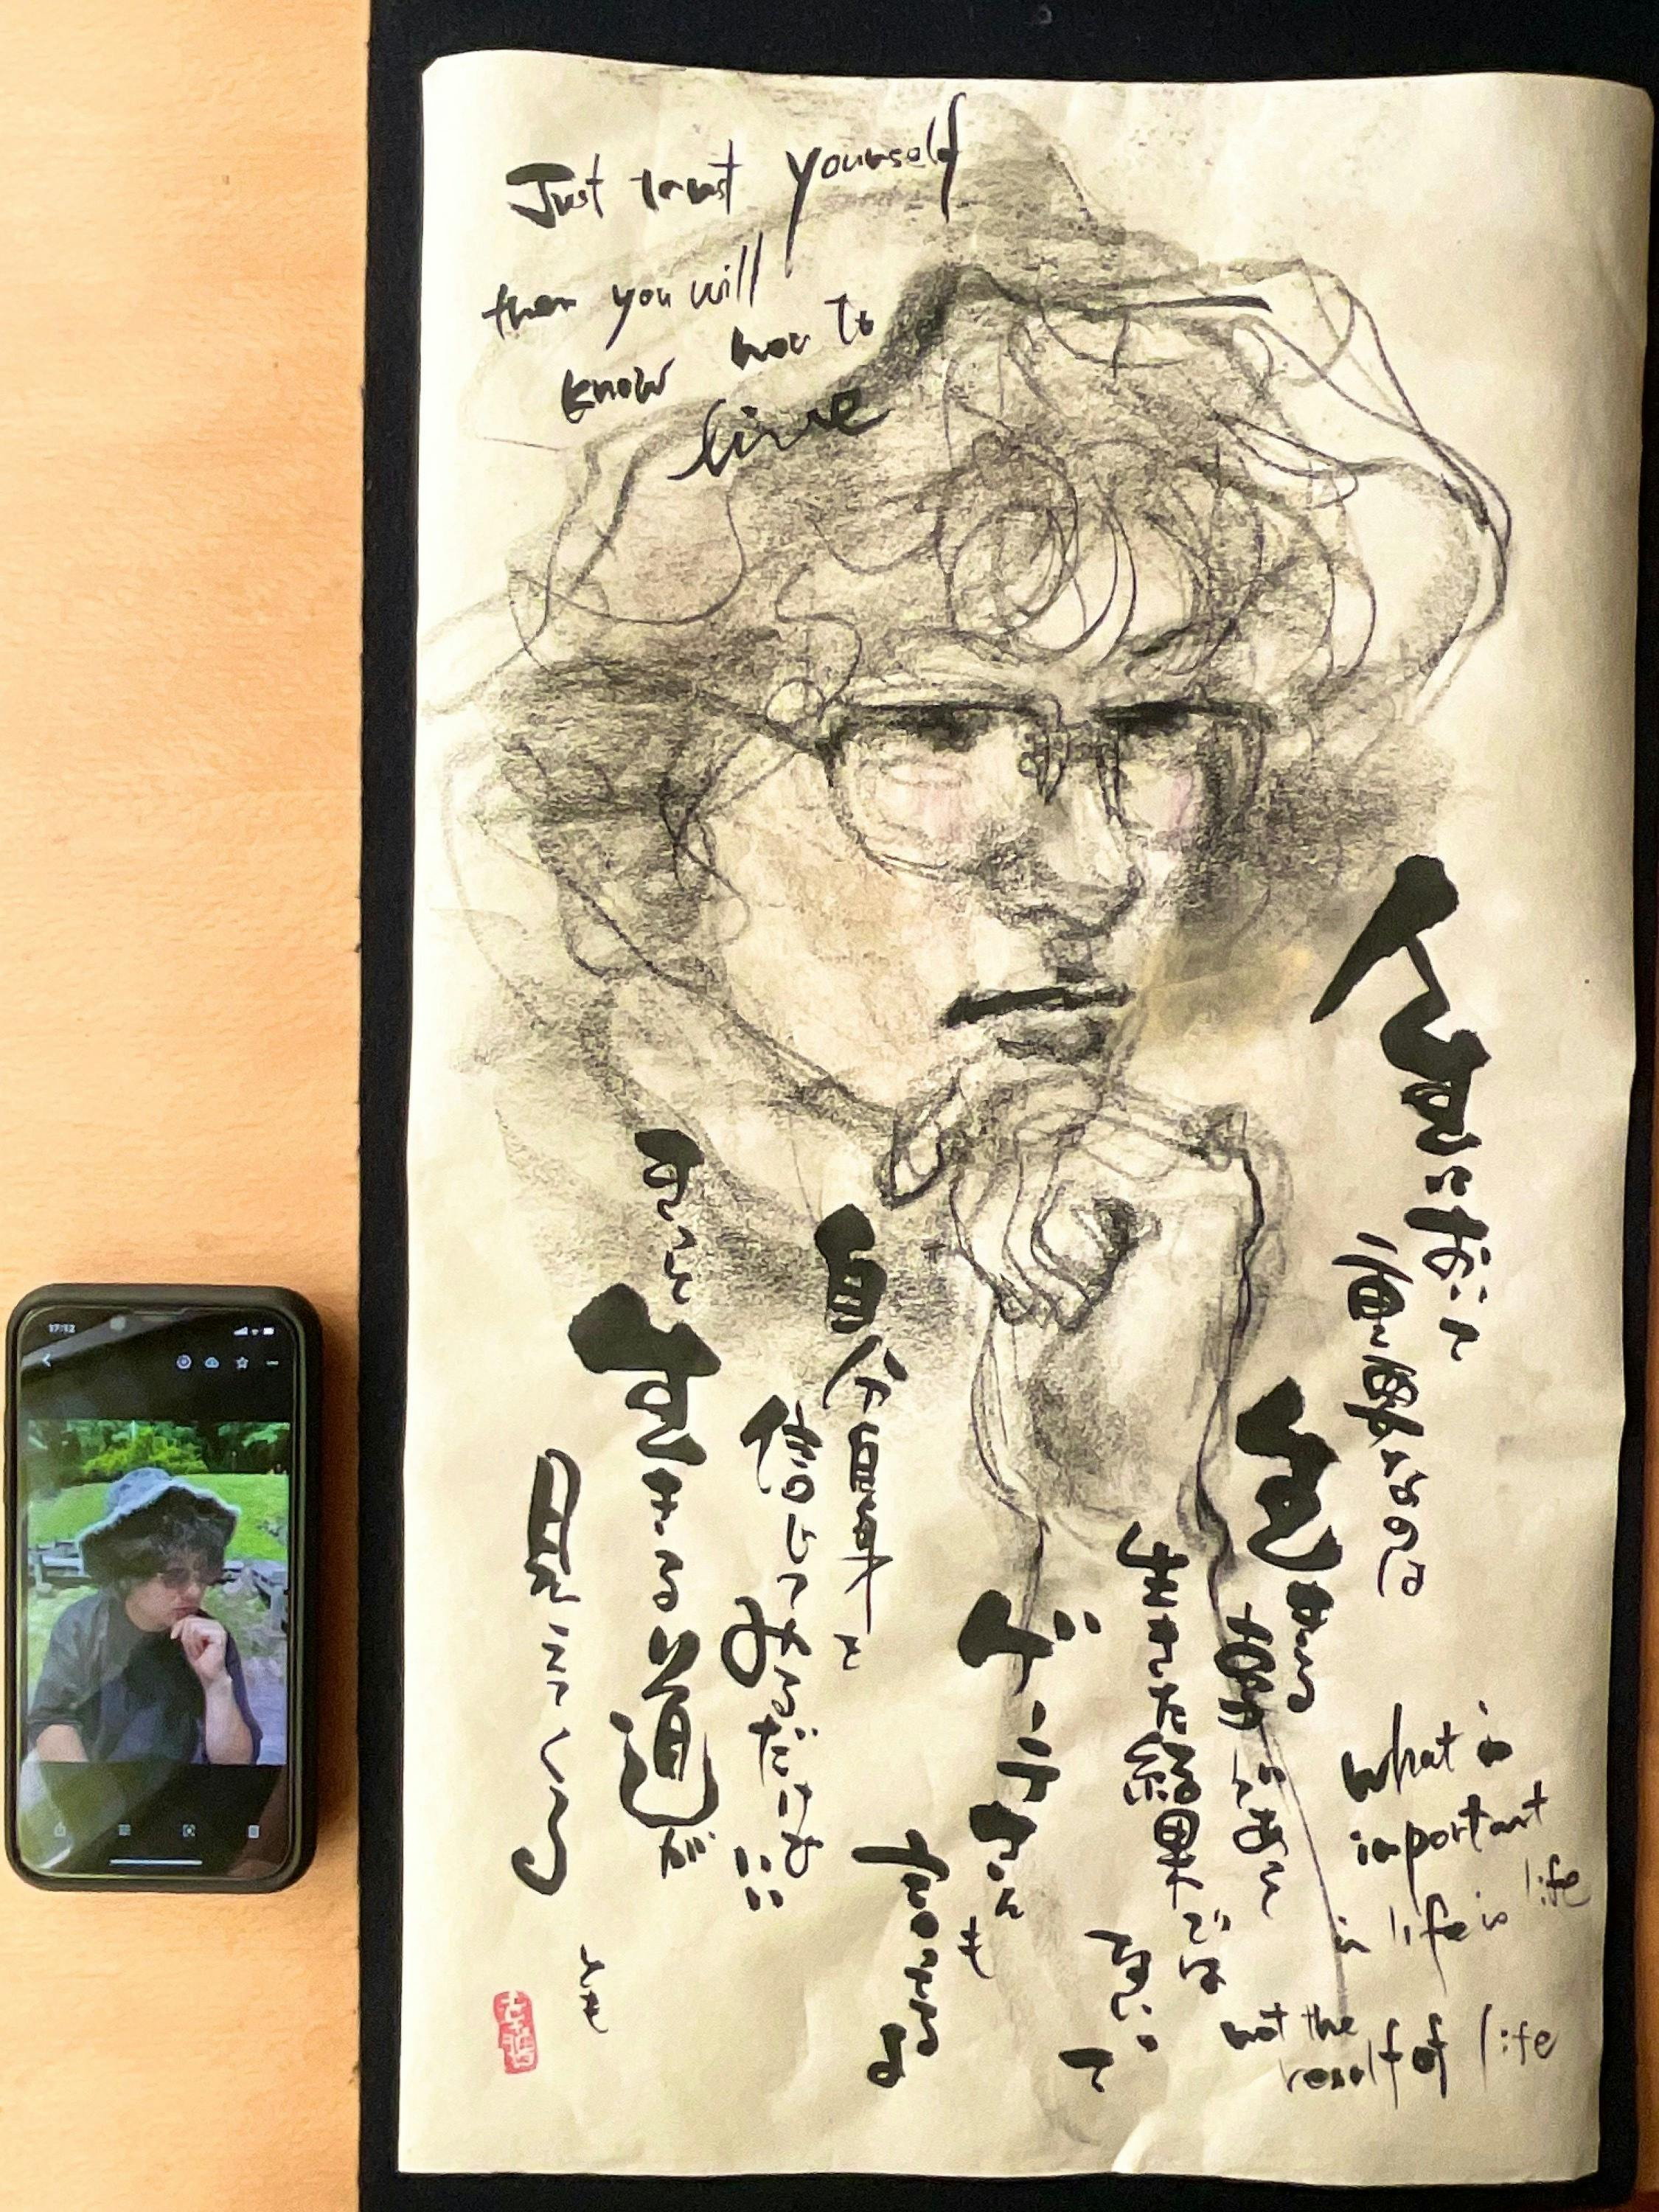 Just trust yourself
then you will
know how to
live
人生において
一番大事なのは
生きる
事であって
生きた結果では
無いって
ゲーテさんも
言ってるよ
自分自身を
信じてみるだけでいい
きっと生きる道が
見えてくる
what is
important
is life is life
not the
result of life
17:12